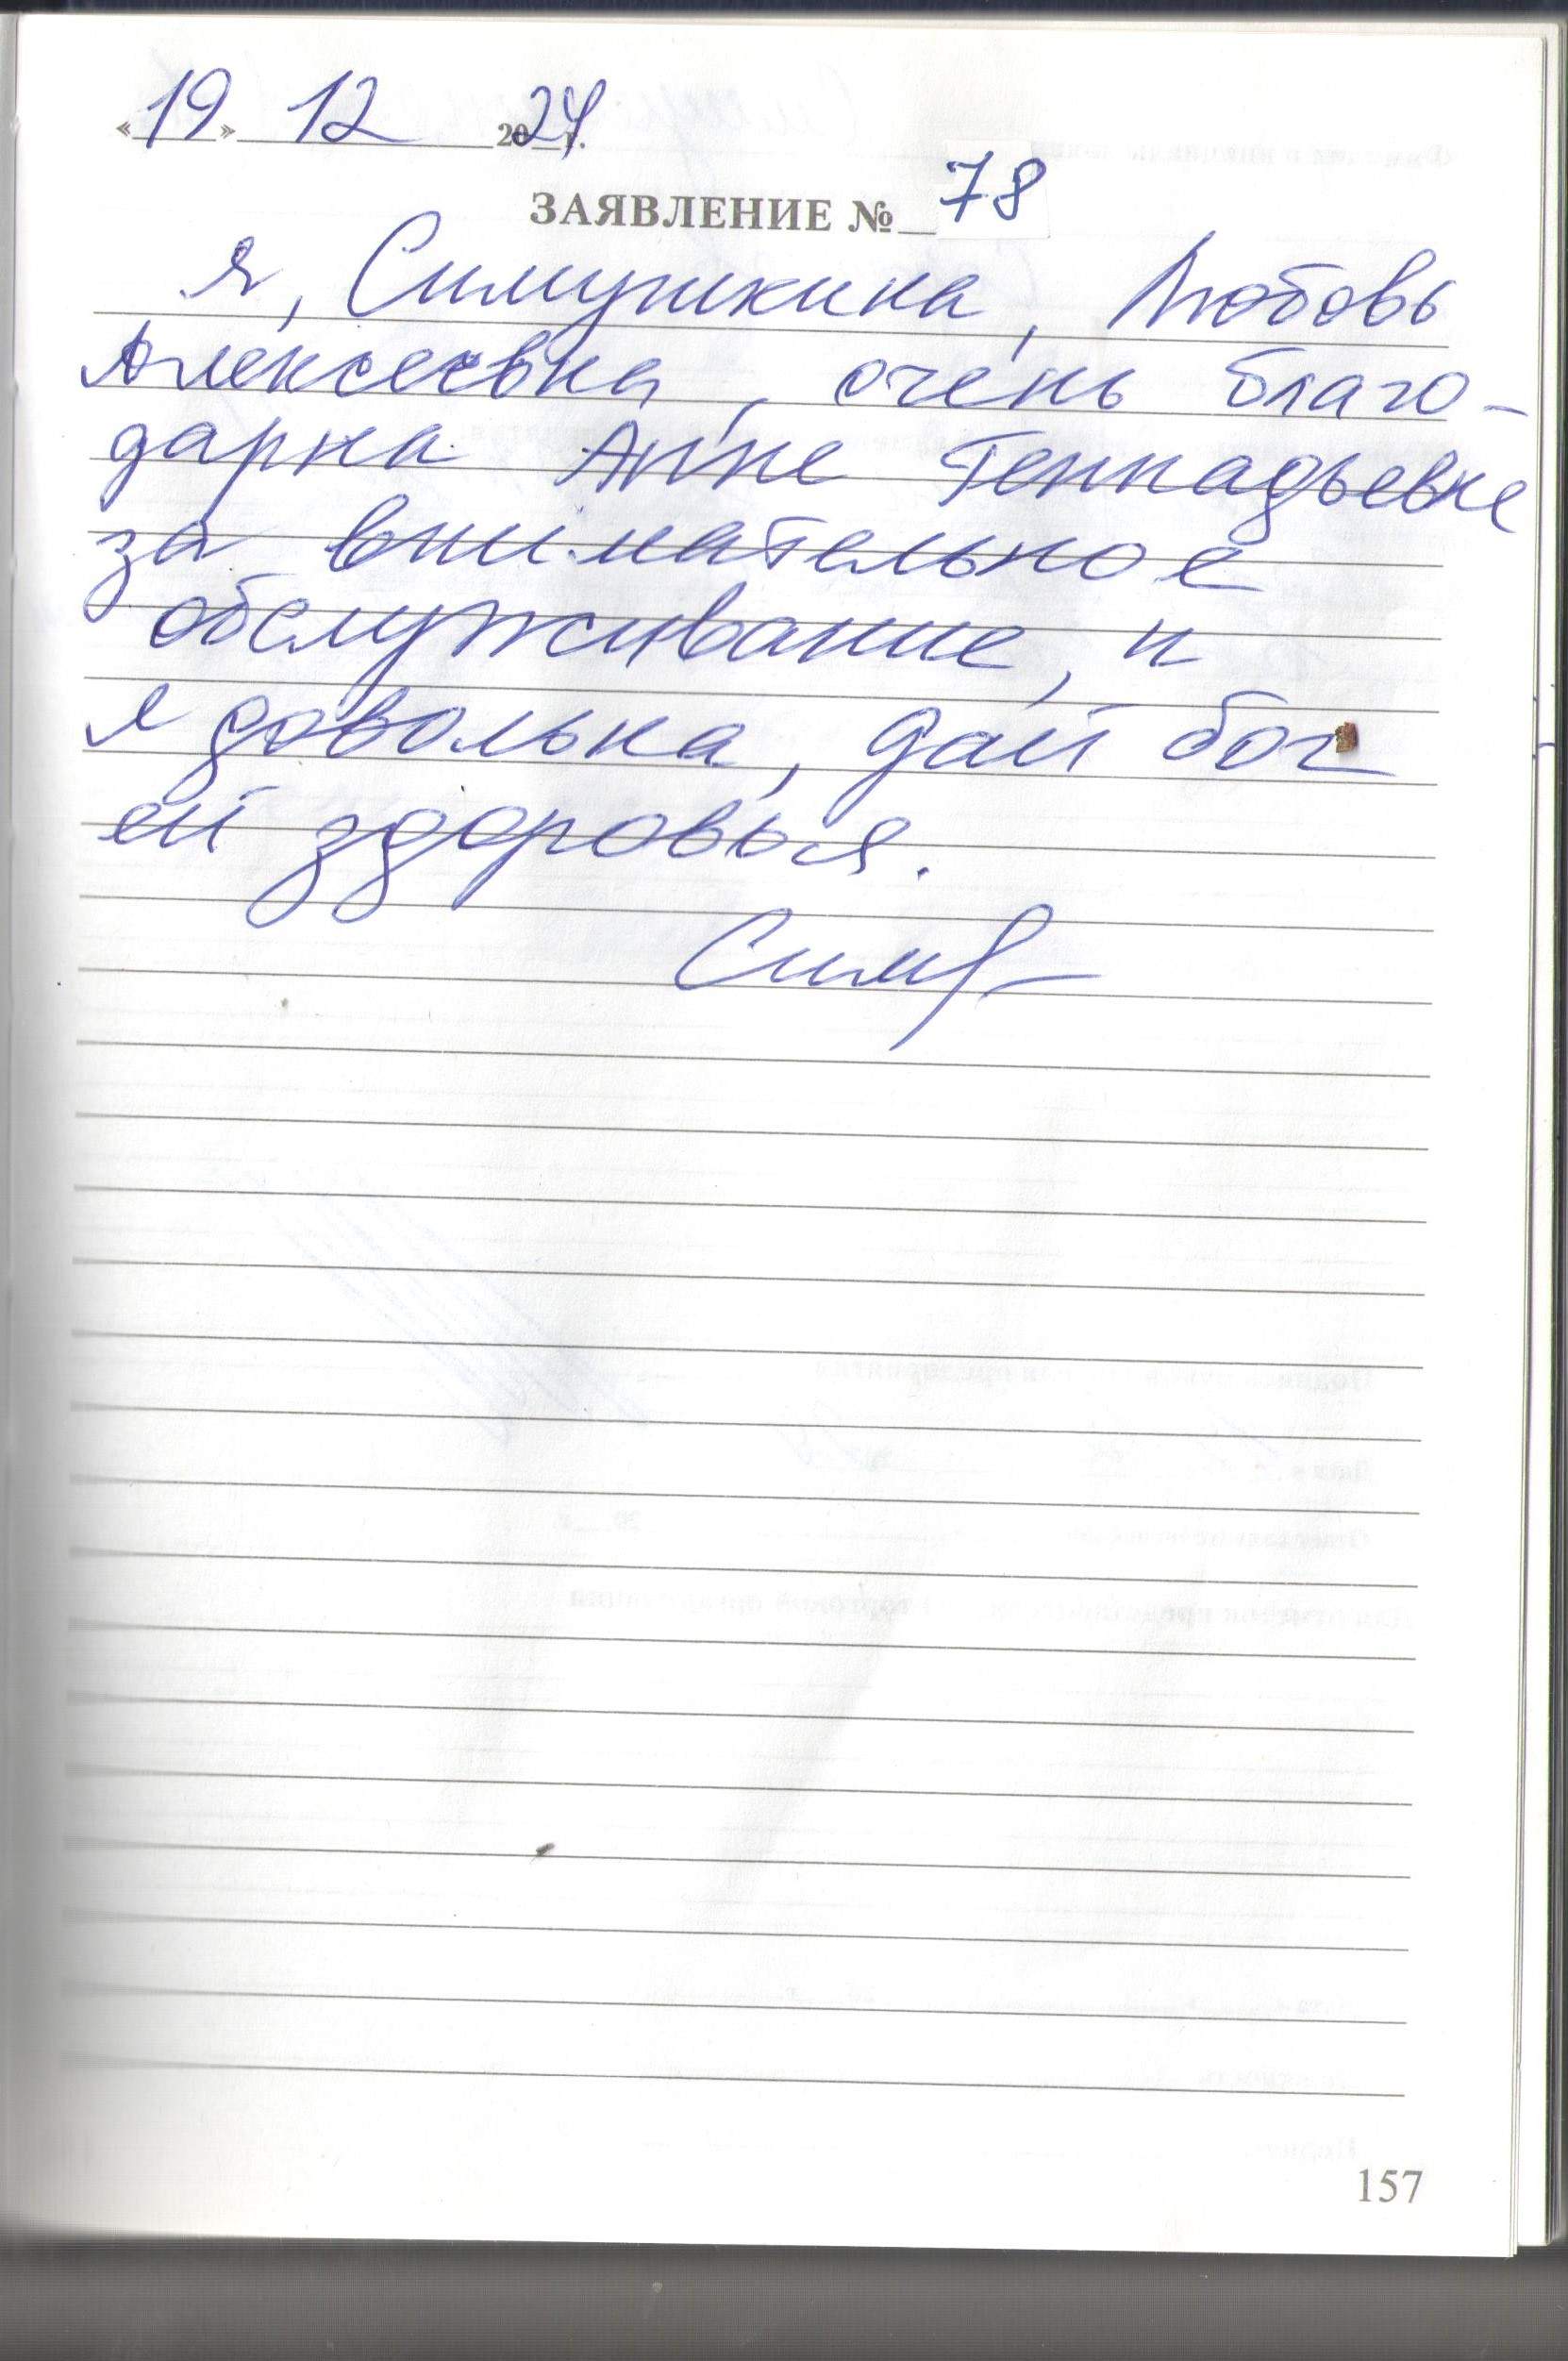 «19» 12 2024 г.
ЗАЯВЛЕНИЕ № 78
я, Симушкина, Любовь
Алексеевна, очень благо-
дарна Анне Геннадьевне
за внимательное
обслуживание, и
я довольна, дай бог
ей здоровья.
Сим
157